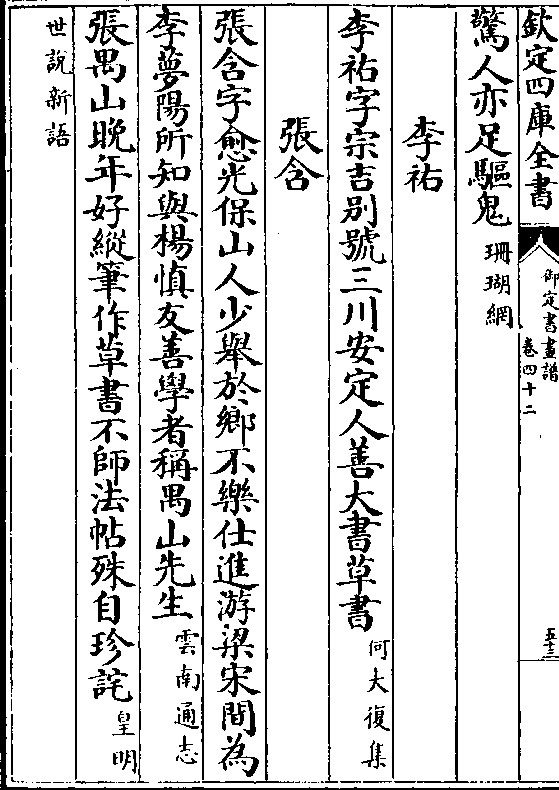 欽定四庫全書
御定書畫譜
卷四十二
五十三
驚人亦足驅鬼珊瑚網
李祐
李祐字宗吉别號三川安定人善大書草書何大復集
張含
張含字愈光保山人少舉於鄉不樂仕進游梁宋間為
李夢陽所知與楊慎友善學者稱禺山先生雲南通志
張禺山晩年好縱筆作草書不師法帖殊自珍詫皇明
世說新語